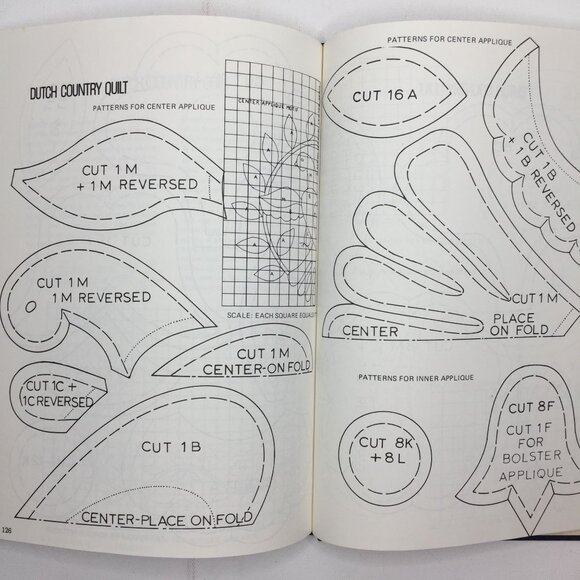 DUTCH COUNTRY QUILT
PATTERNS FOR CENTER APPLIQUE
CENTER APPLIQUE MOTIF
CUT 1 M
+ 1 M REVERSED
CUT 1 M
1 M REVERSED
SCALE: EACH SQUARE EQUALS
CUT 1 M
CENTER-ON FOLD
CUT 1C +
1C REVERSED
CUT 1 B
CENTER-PLACE ON FOLD
126
PATTERNS FOR CENTER APPLIQUE
CUT 16 A
CUT 1 B
+ 1 B REVERSED
CUT 1 M
CENTER
PLACE
ON FOLD
PATTERNS FOR INNER APPLIQUE
CUT 8K
+ 8 L
CUT 8F
CUT 1F
FOR
BOLSTER
APPLIQUE